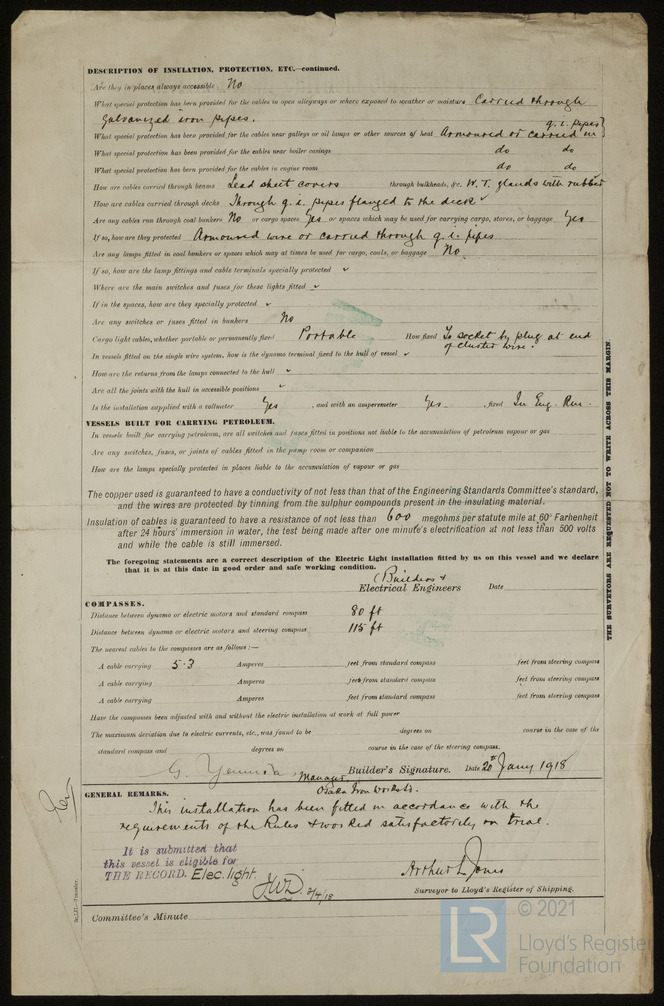 DESCRIPTION OF INSULATION, PROTECTION, ETC.—continued.
Are they in places always accessible No
What special protection has been provided for the cables in open alleyways or where exposed to weather or moisture Carried through
galvanized iron pipes.
What special protection has been provided for the cables near galleys or oil lamps or other sources of heat Armoured or carried in g. i. pipes
What special protection has been provided for the cables near boiler casings do do
What special protection has been provided for the cables in engine room do do
How are cables carried through beams Lead sheet covers through bulkheads, &c. W. T. glands with rubber
How are cables carried through decks Through g. i. pipes flanged to the deck
Are any cables run through coal bunkers No or cargo spaces Yes or spaces which may be used for carrying cargo, stores, or baggage Yes
If so, how are they protected Armoured wire or carried through g. i. pipes
Are any lamps fitted in coal bunkers or spaces which may at times be used for cargo, coals, or baggage No.
If so, how are the lamp fittings and cable terminals specially protected
Where are the main switches and fuses for these lights fitted
If in the spaces, how are they specially protected
Are any switches or fuses fitted in bunkers No
Cargo light cables, whether portable or permanently fixed Portable How fixed To socket by plug at end
of cluster wire.
In vessels fitted on the single wire system, how is the dynamo terminal fixed to the hull of vessel
How are the returns from the lamps connected to the hull
Are all the joints with the hull in accessible positions
Is the installation supplied with a voltmeter Yes , and with an amperemeter Yes , fixed In Eng. Rm.
VESSELS BUILT FOR CARRYING PETROLEUM.
In vessels built for carrying petroleum, are all switches and fuses fitted in positions not liable to the accumulation of petroleum vapour or gas
Are any switches, fuses, or joints of cables fitted in the pump room or companion
How are the lamps specially protected in places liable to the accumulation of vapour or gas
The copper used is guaranteed to have a conductivity of not less than that of the Engineering Standards Committee's standard,
and the wires are protected by tinning from the sulphur compounds present in the insulating material.
Insulation of cables is guaranteed to have a resistance of not less than 600 megohms per statute mile at 60° Farhenheit
after 24 hours' immersion in water, the test being made after one minute's electrification at not less than 500 volts
and while the cable is still immersed.
The foregoing statements are a correct description of the Electric Light installation fitted by us on this vessel and we declare
that it is at this date in good order and safe working condition.
(Builders &
Electrical Engineers Date
COMPASSES.
Distance between dynamo or electric motors and standard compass 80 ft
Distance between dynamo or electric motors and steering compass 115 ft
The nearest cables to the compasses are as follows:—
A cable carrying 5.3 Amperes feet from standard compass feet from steering compass
A cable carrying Amperes feet from standard compass feet from steering compass
A cable carrying Amperes feet from standard compass feet from steering compass
Have the compasses been adjusted with and without the electric installation at work at full power
The maximum deviation due to electric currents, etc., was found to be degrees on course in the case of the
standard compass and degrees on course in the case of the steering compass.
Manager Builder's Signature. Date 20th Jany 1918
Osaka Iron Works Ld.
GENERAL REMARKS.
This installation has been fitted in accordance with the
requirements of the Rules & worked satisfactorily on trial.
It is submitted that
this vessel is eligible for
THE RECORD. Elec. light.
JWD 2/4/18
Arthur L Jones
Surveyor to Lloyd's Register of Shipping.
Committee's Minute
THE SURVEYORS ARE REQUESTED NOT TO WRITE ACROSS THIS MARGIN.
LR
© 2021
Lloyd's Register
Foundation